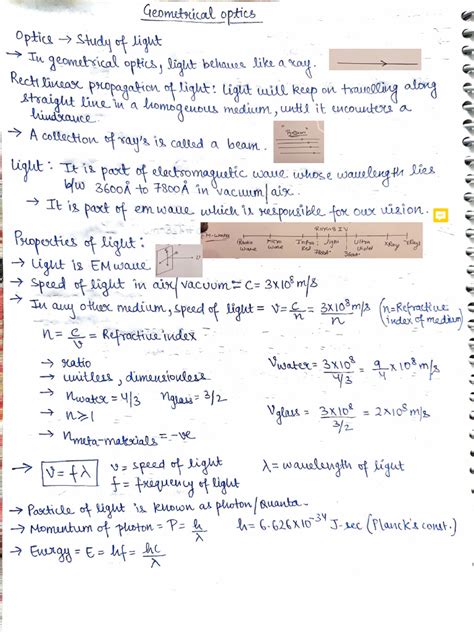 Geometrical optics
Optics → Study of light
→ In geometrical optics, light behaves like a ray.
Rectilinear propagation of light: Light will keep on travelling along
straight line in a homogenous medium, until it encounters a
hindrance.
→ A collection of ray's is called a beam.
Light: It is part of electromagnetic wave whose wavelength lies
b/w 3600Å to 7800Å in vacuum/air.
→ It is part of em wave which is responsible for our vision.
Properties of light:
Radio wave Micro wave Infra Red Light Ultra Violet X Ray γ Ray
→ Light is EM wave
→ Speed of light in air/vacuum = C = 3×10⁸ m/s
→ In any other medium, speed of light = v = c/n = 3×10⁸/n m/s (n = Refractive index of medium)
n = c/v = Refractive index
→ ratio
→ unitless, dimensionless
→ n water = 4/3 n glass = 3/2
→ n ≥ 1
→ n meta-materials = -ve
V water = 3×10⁸/(4/3) = 9/4 × 10⁸ m/s
V glass = 3×10⁸/(3/2) = 2×10⁸ m/s
→ V = fλ v = speed of light λ = wavelength of light
f = frequency of light
→ Particle of light is known as photon/Quanta.
→ Momentum of photon = P = h/λ h = 6.626×10⁻³⁴ J-sec (Planck's const.)
→ Energy = E = hf = hc/λ